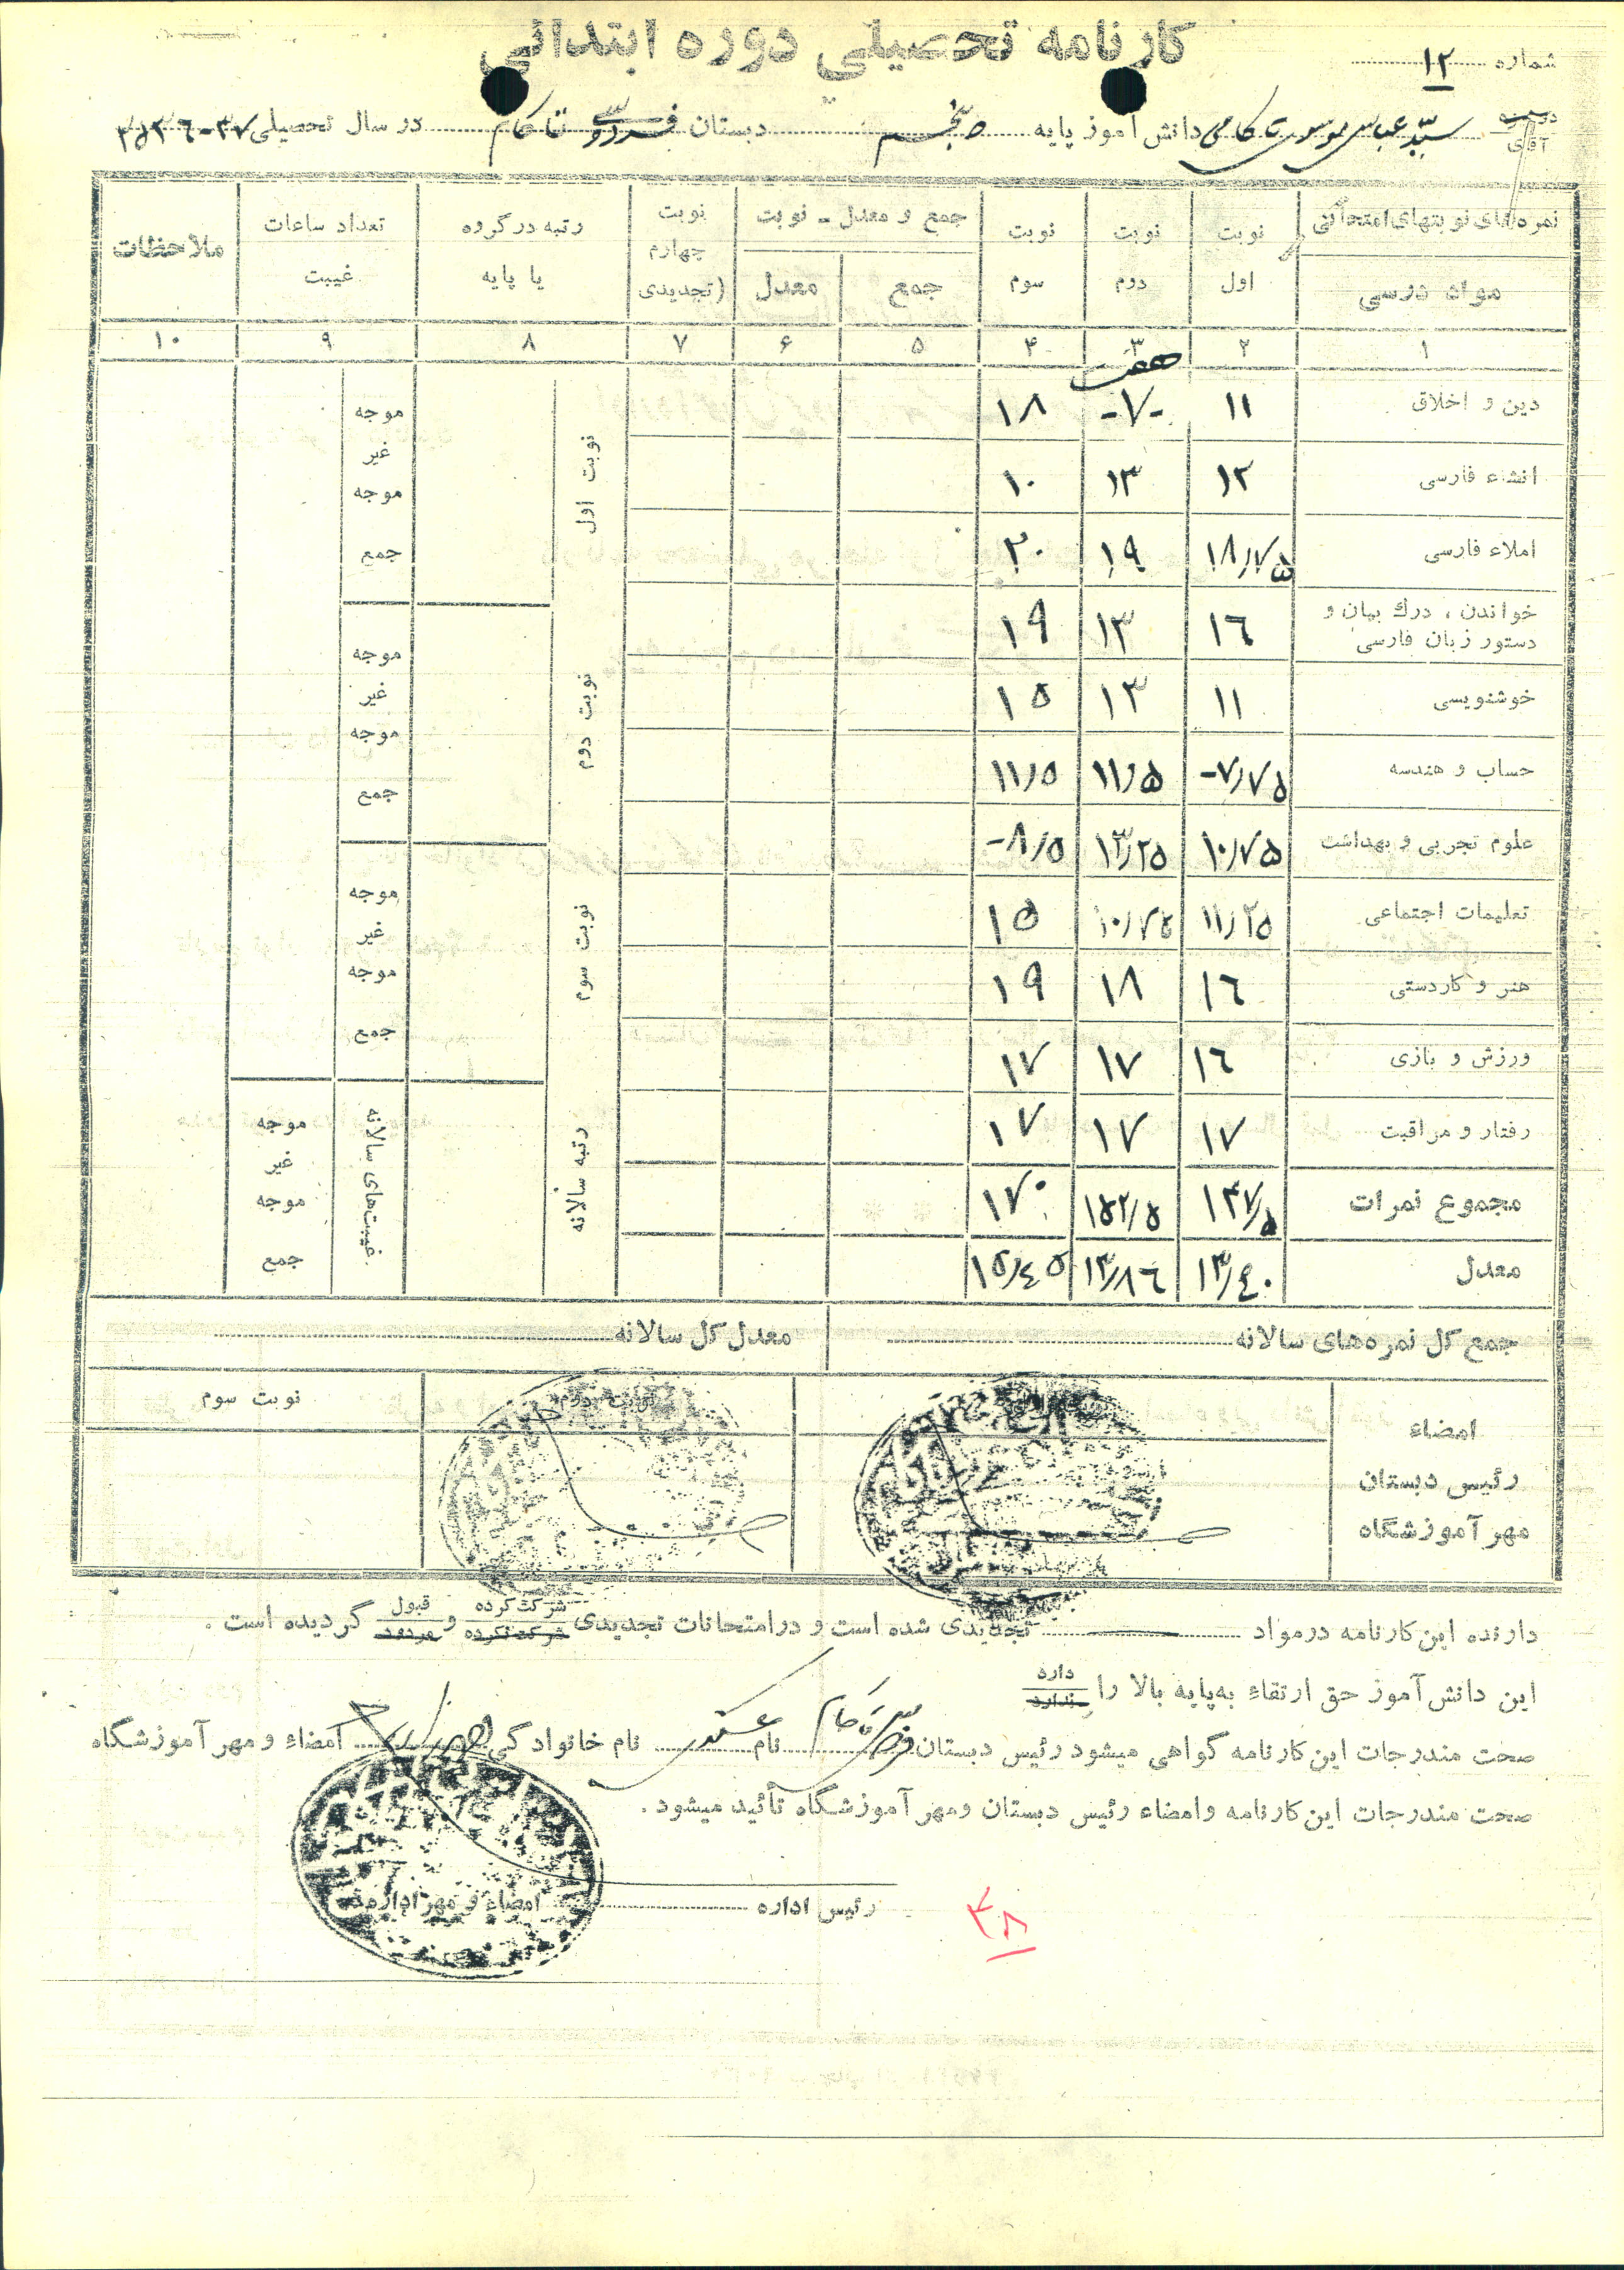 کارنامه تحصیلی دوره ابتدائی
شماره ۱۲
دوشیزه
آقای سید عباس موسوی تاکامی دانش آموز پایه پنجم دبستان فردوسی تاکام در سال تحصیلی ۳۷-۲۵۳۶
نمره‌های نوبتهای امتحانی نوبت نوبت نوبت جمع و معدل - نوبت نوبت رتبه در گروه تعداد ساعات ملاحظات
مواد درسی اول دوم سوم جمع معدل چهارم (تجدیدی یا پایه غیبت
۱ ۲ ۳ ۴ ۵ ۶ ۷ ۸ ۹ ۱۰
هفت
دین و اخلاق ۱۱ -۷- ۱۸
انشاء فارسی ۱۲ ۱۳ ۱۰
املاء فارسی ۱۸/۷۵ ۱۹ ۲۰
خواندن ، درك بیان و
دستور زبان فارسی ۱۶ ۱۳ ۱۹
خوشنویسی ۱۱ ۱۳ ۱۵
حساب و هندسه ۷/۷۵- ۱۱/۵ ۱۱/۵
علوم تجربی و بهداشت ۱۰/۷۵ ۱۳/۲۵ ۸/۵-
تعلیمات اجتماعی ۱۱/۲۵ ۱۰/۷۵ ۱۵
هنر و کاردستی ۱۶ ۱۸ ۱۹
ورزش و بازی ۱۶ ۱۷ ۱۷
رفتار و مراقبت ۱۷ ۱۷ ۱۷
مجموع نمرات ۱۴۷/۵ ۱۵۲/۵ ۱۷۰
معدل ۱۳/۴۰ ۱۳/۸۶ ۱۵/۴۵
نوبت اول
موجه
غیر
موجه
جمع
نوبت دوم
موجه
غیر
موجه
جمع
نوبت سوم
موجه
غیر
موجه
جمع
رتبه سالانه
غیبت‌های سالانه
موجه
غیر
موجه
جمع
جمع کل نمره‌های سالانه معدل کل سالانه
امضاء
رئیس دبستان
مهر آموزشگاه
نوبت دوم
نوبت سوم
دارنده این کارنامه در مواد تجدیدی شده است و در امتحانات تجدیدی شرکت کرده شرکت نکرده و قبول مردود گردیده است .
این دانش آموز حق ارتقاء به پایه بالا را دارد ندارد
صحت مندرجات این کارنامه گواهی میشود رئیس دبستان فردوسی تاکام نام نام خانوادگی امضاء و مهر آموزشگاه
صحت مندرجات این کارنامه و امضاء رئیس دبستان و مهر آموزشگاه تأئید میشود .
رئیس اداره امضاء و مهر اداره
۴۸